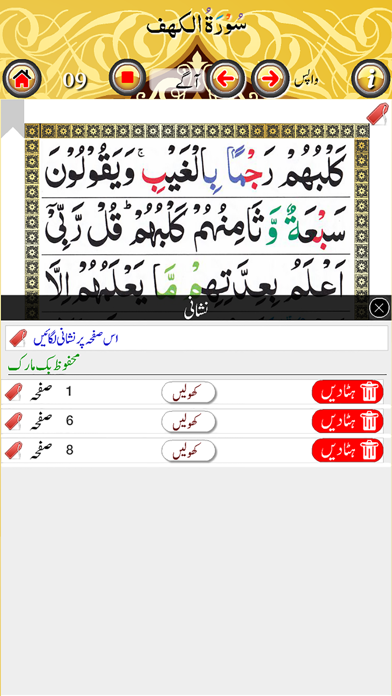 سُوْرَۃُ الكهف
09 آگے واپس i
كَلْبُهُمْ رَجْمًۢا بِالْغَيْبِ ۚ وَيَقُوْلُوْنَ
سَبْعَةٌ وَّثَامِنُهُمْ كَلْبُهُمْ ؕ قُلْ رَّبِّيْۤ
اَعْلَمُ بِعِدَّتِهِمْ مَّا يَعْلَمُهُمْ اِلَّا
نشانی
اس صفحہ پر نشانی لگائیں
محفوظ بک مارک
صفحہ 1 کھولیں ہٹادیں
صفحہ 6 کھولیں ہٹادیں
صفحہ 8 کھولیں ہٹادیں